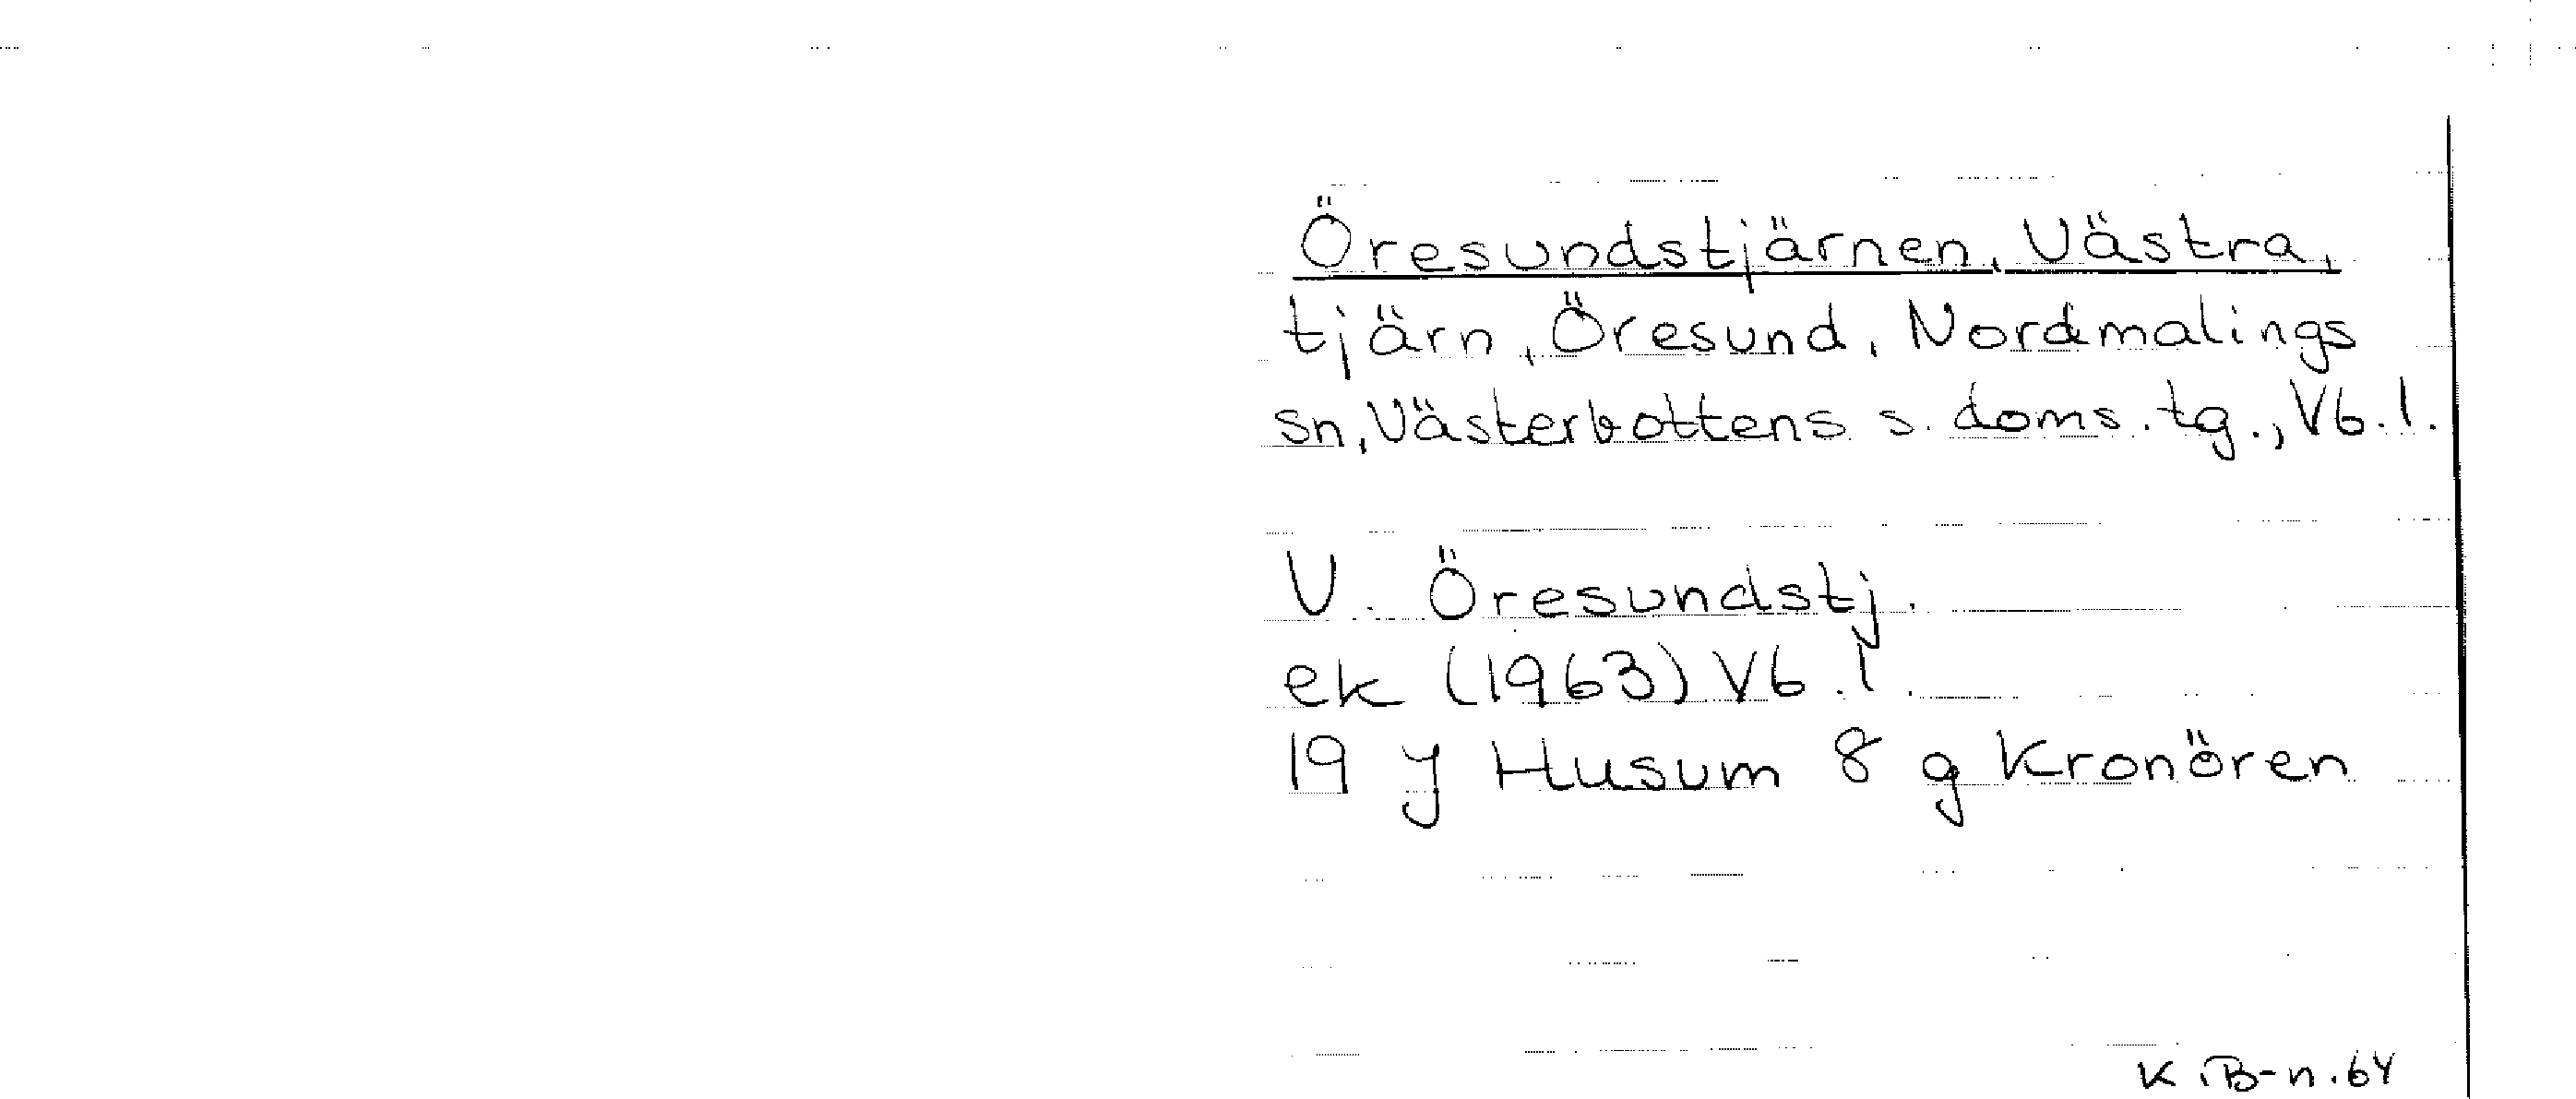 Öresundstjärnen, Västra,
tjärn, Öresund, Nordmalings
sn, Västerbottens s. doms. tg., Vb. l.
V. Öresundstj.
ek (1963) Vb. l.
19 J Husum 8 g Kronören
K.B-n. 64